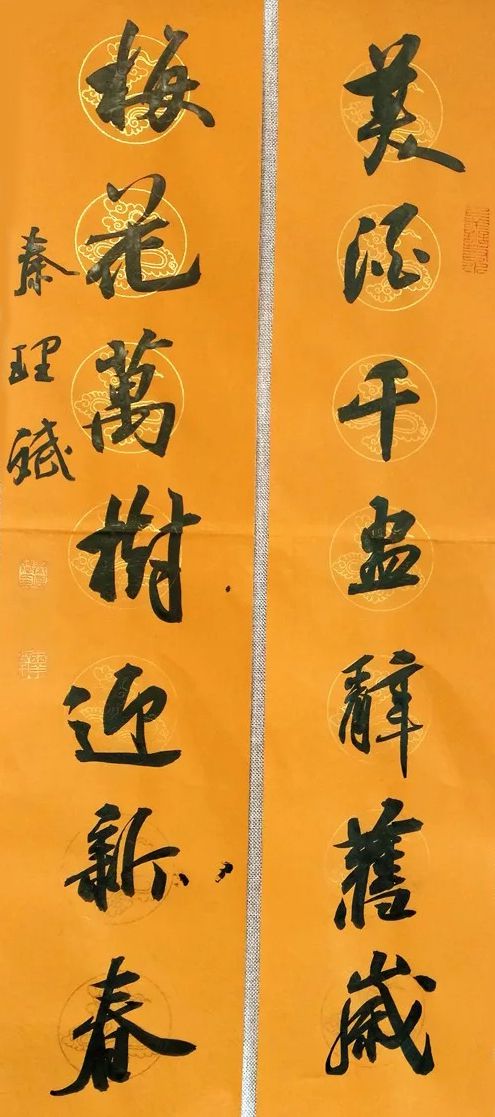 美酒千盅辭舊歲
梅花萬樹迎新春
秦理斌